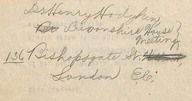 Dr Henry Hodgkin
Devonshire House
Meeting
136 Bishopsgate
London E.C.